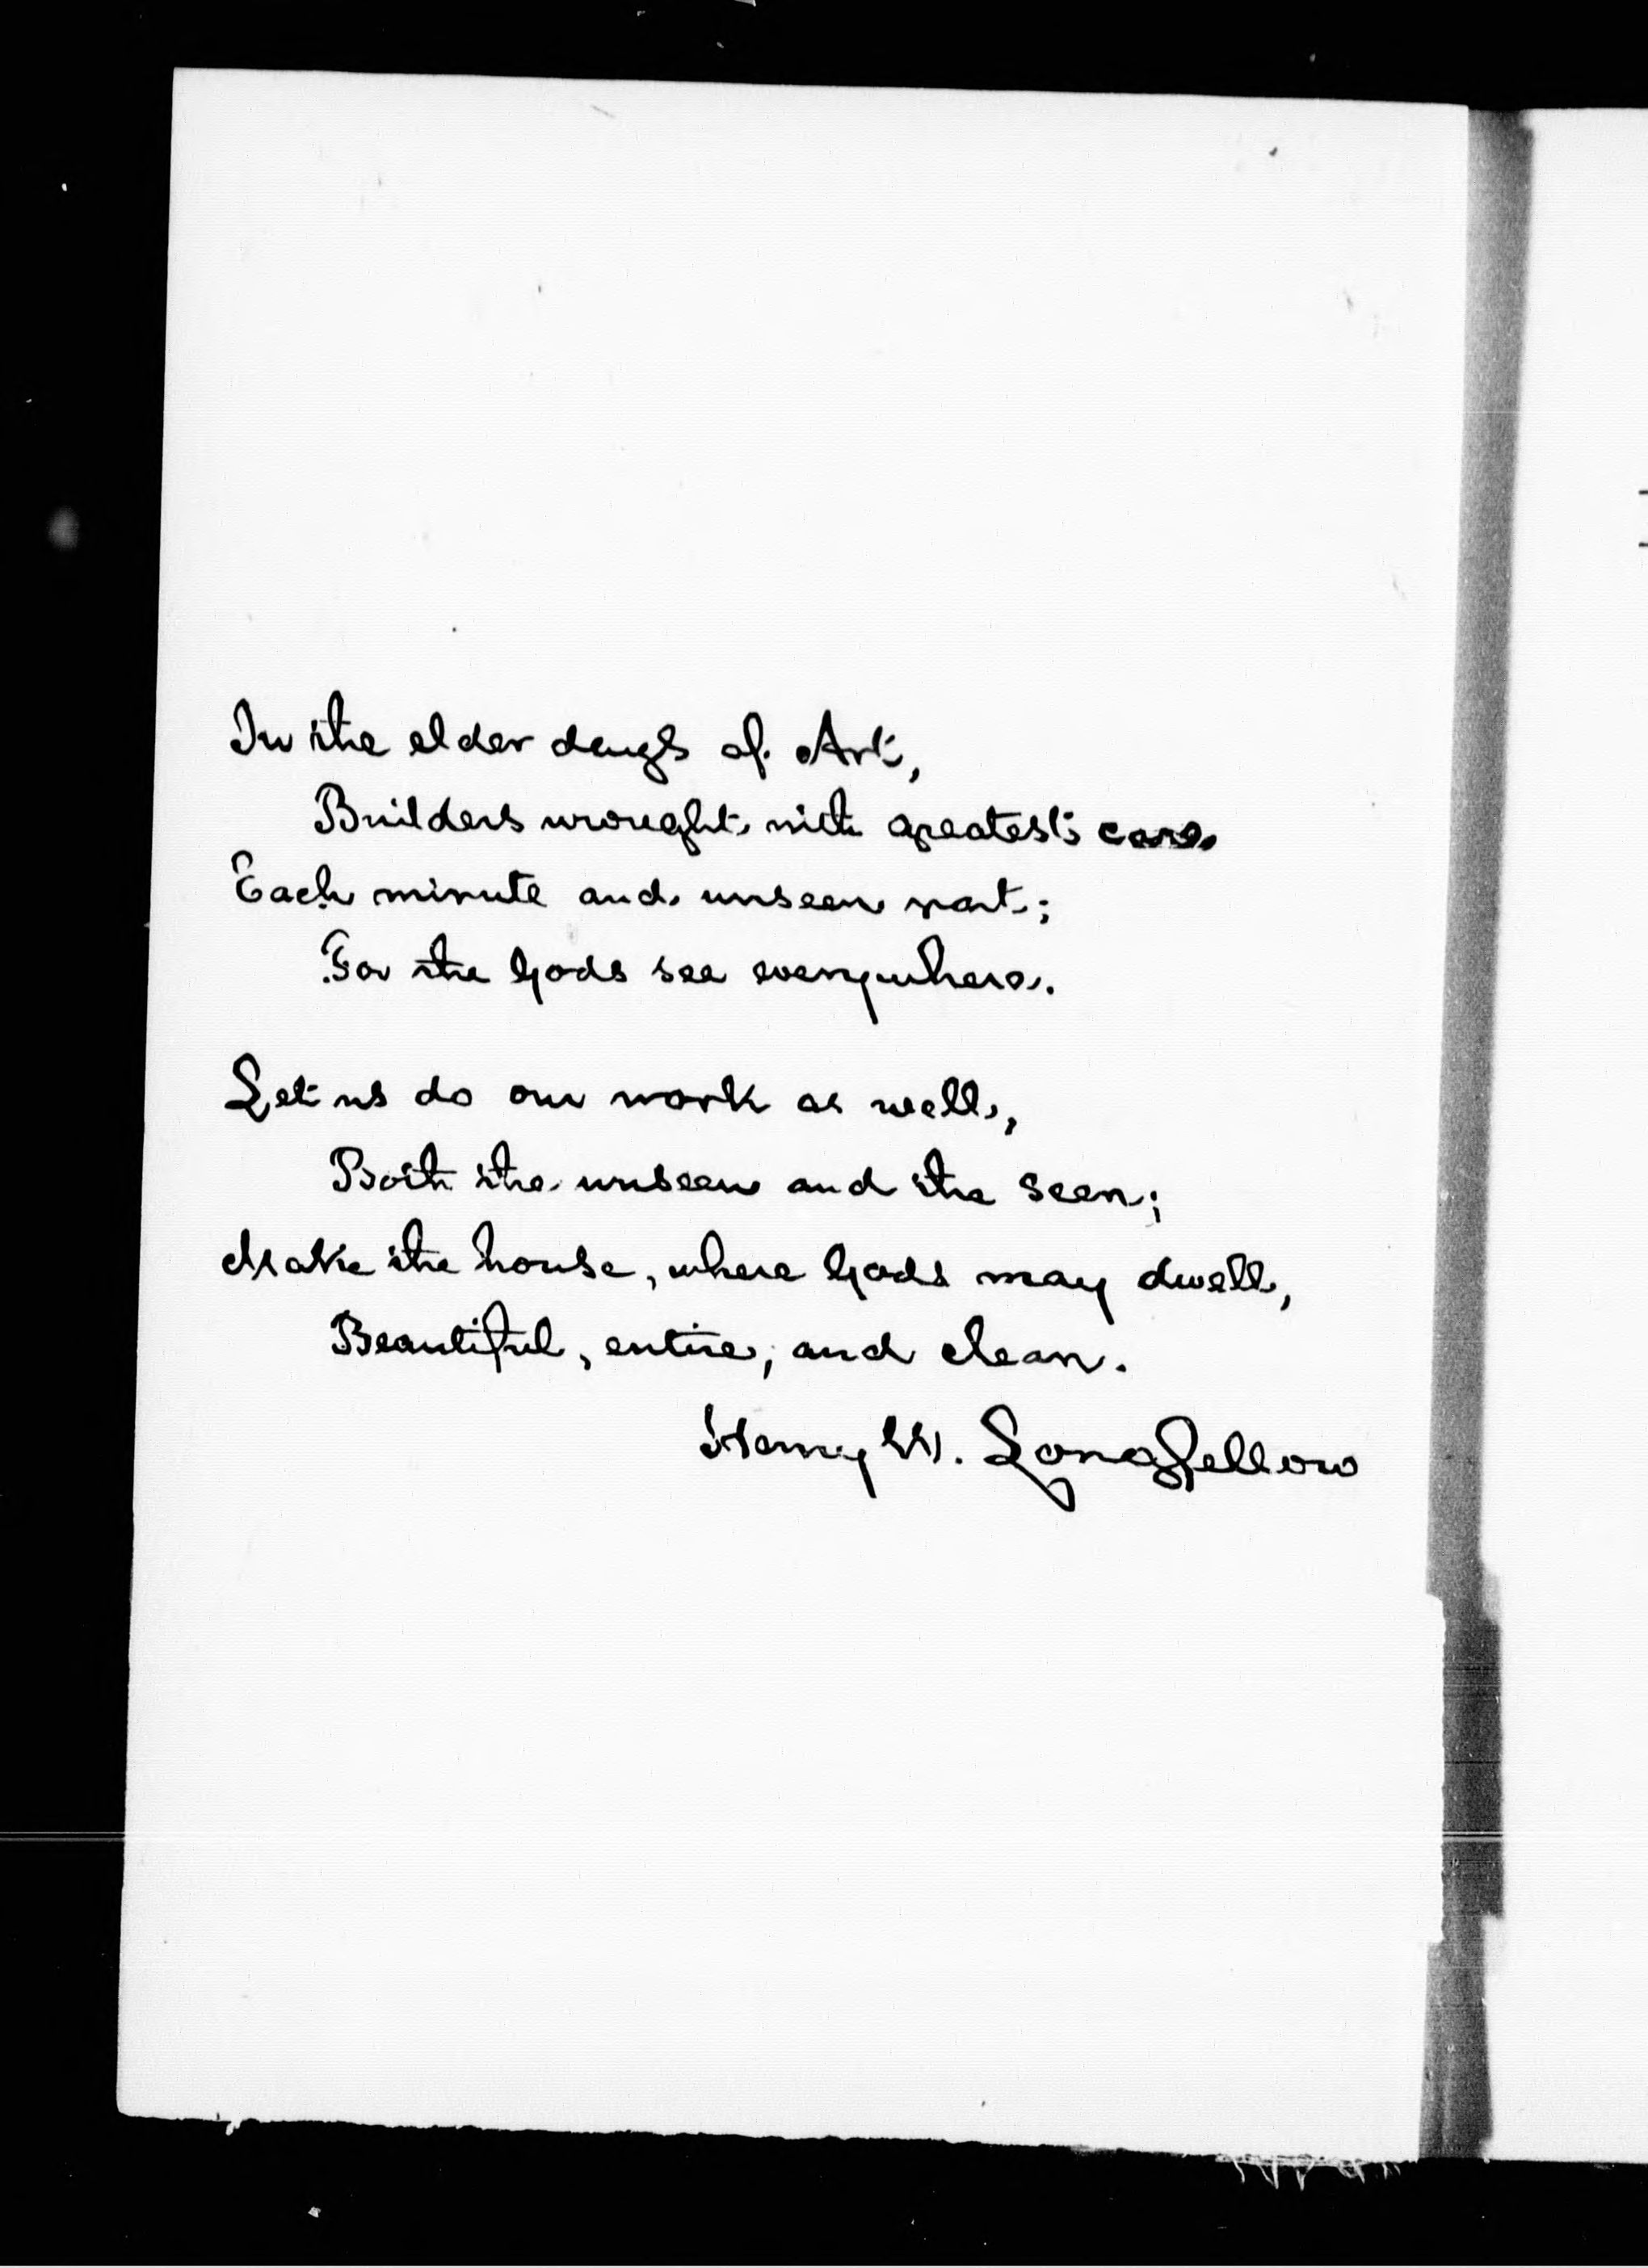 In the elder days of Art,
Builders wrought with greatest care
Each minute and unseen part;
For the Gods see everywhere.
Let us do our work as well,
Both the unseen and the seen;
Make the house, where Gods may dwell,
Beautiful, entire, and clean.
Henry W. Longfellow